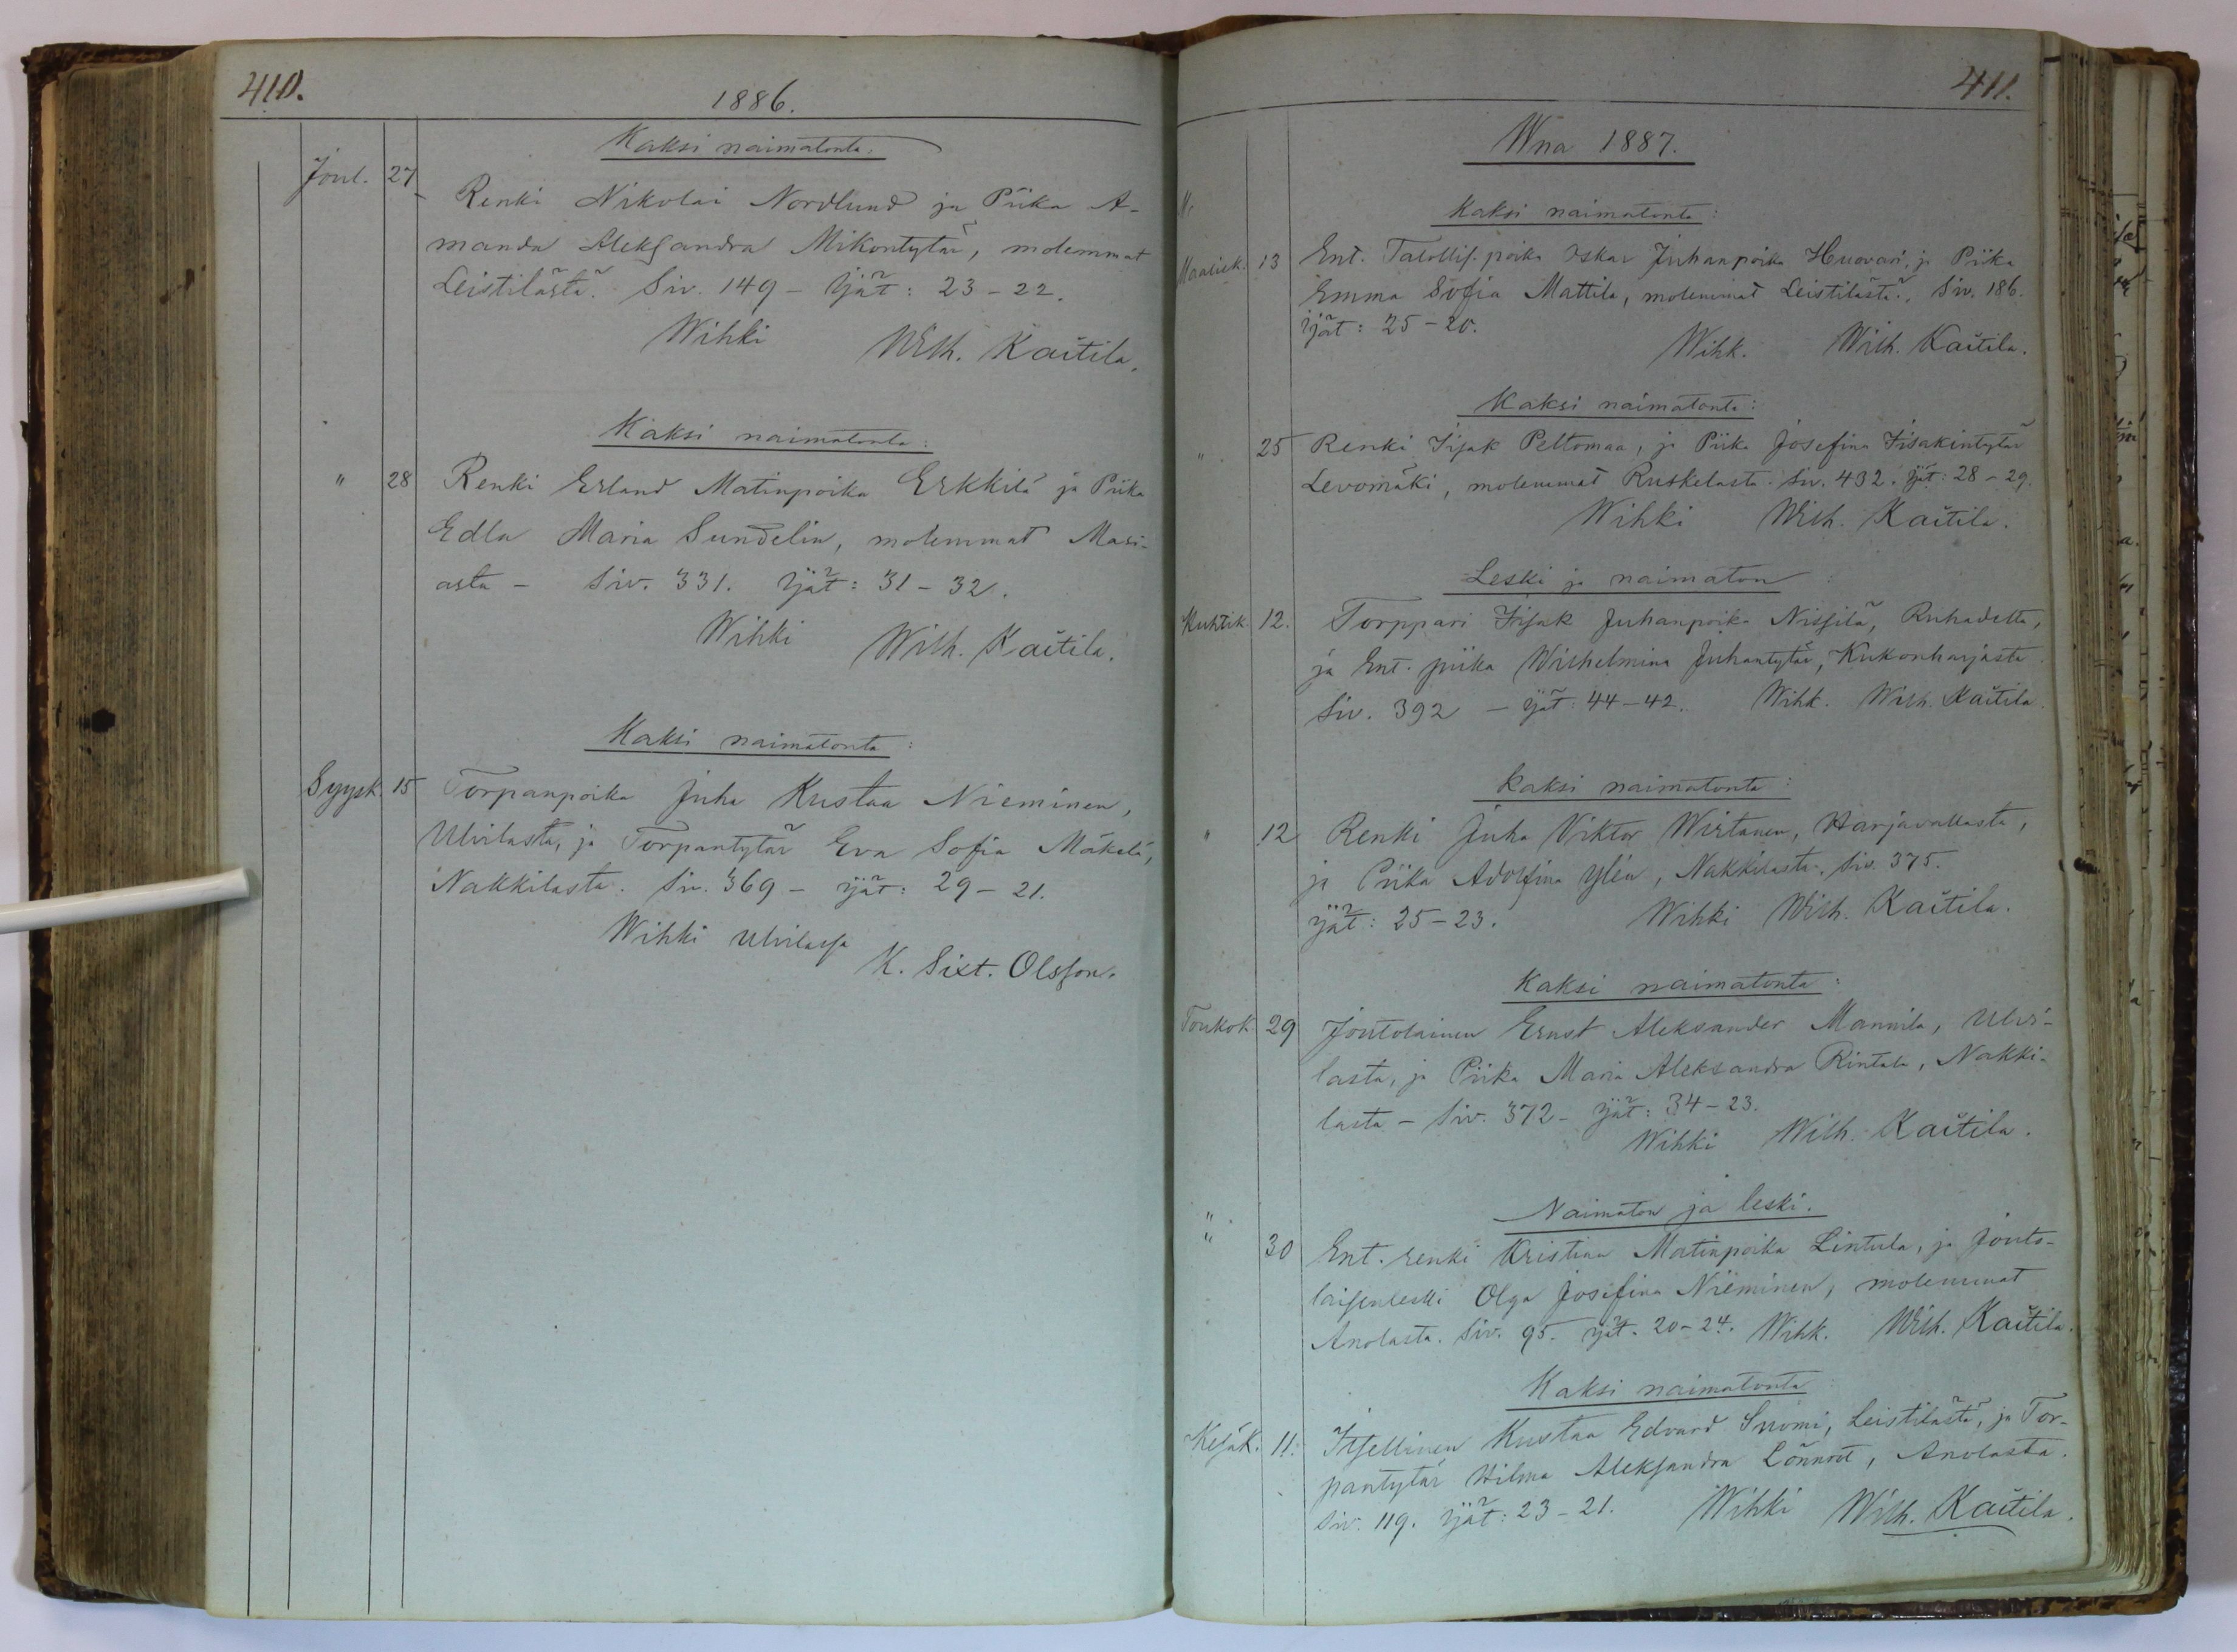 410.
1886.
Kaksi naimatonta.
Joul. 27 Renki Nikolai Nordlund ja Piika A-
manda Aleksandra Mikontytär, molemmat
Leistilästä. Siv. 149 – Ijät: 23 – 22.
Wihki Wilh. Kaitila.
Kaksi naimatonta:
" 28 Renki Erland Matinpoika Erkkilä ja Piika
Edla Maria Sundelin, molemmat Masi-
asta – Siv. 331. Ijät: 31 – 32.
Wihki Wilh. Kaitila.
Kaksi naimatonta:
Syysk. 15 Torpanpoika Juha Kustaa Nieminen,
Ulvilasta, ja Torpantytär Eva Sofia Mäkelä,
Nakkilasta. Siv. 369 – ijät: 29 – 21.
Wihki Ulvilassa
K. Sixt. Olsson.
411.
Wna 1887.
Kaksi naimatonta:
Maalisk. 13 Ent. Talollis. poika Oskar Juhanpoika Huovari, ja Piika
Emma Sofia Mattila, molemmat Leistilästä. Siv. 186.
Ijät: 25 – 20.
Wihk. Wilh. Kaitila.
Kaksi naimatonta:
" 25 Renki Iisak Peltomaa, ja Piika Josefina Iisakintytär
Levomäki, molemmat Ruskelasta. Siv. 432. Ijät: 28 – 29.
Wihki Wilh. Kaitila.
Leski ja naimaton:
Huhtik. 12. Torppari Iisak Juhanpoik. Nissilä, Ruhadetta,
ja Ent. piika Wilhelmina Juhantytär, Kukonharjasta.
Siv. 392 – Ijät: 44 – 42. Wihk. Wilh. Kaitila.
Kaksi naimatonta:
" 12 Renki Juha Viktor Wirtanen, Harjavallasta,
ja Piika Adolfina Ylén, Nakkilasta. Siv. 375.
Ijät: 25 – 23. Wihki Wilh. Kaitila.
Kaksi naimatonta:
Toukok. 29 Joutolainen Ernst Aleksander Mannila, Ulvi-
lasta, ja Piika Maria Aleksandra Rintala, Nakki-
lasta – Siv. 372 – Ijät: 34 – 23.
Wihki Wilh. Kaitila.
Naimaton ja leski.
" 30 Ent. renki Kristian Matinpoika Lintula, ja Jouto-
laisenleski Olga Josefina Nieminen, molemmat
Anolasta. Siv. 95. Ijät. 20 – 24. Wihk. Wilh. Kaitila.
Kaksi naimatonta
Kesäk. 11. Itsellinen Kustaa Edvard Suomi, Leistilästä, ja Tor-
pantytär Hilma Aleksandra Lönnrot, Anolasta.
Siv. 119. Ijät: 23 – 21. Wihki Wilh. Kaitila.